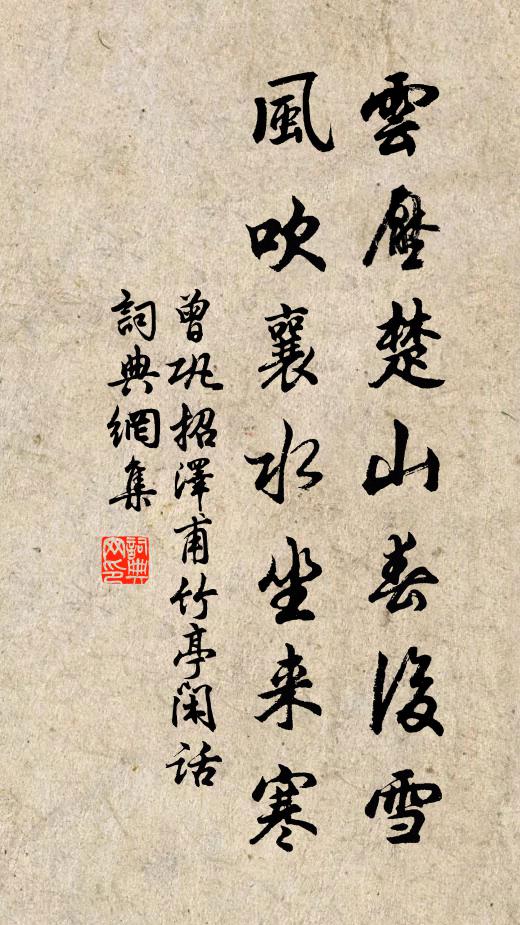 雲壓楚山春後雪
風吹襄水坐來寒
曾巩招澤甫竹亭閑話
詞典網集
詞典
网印